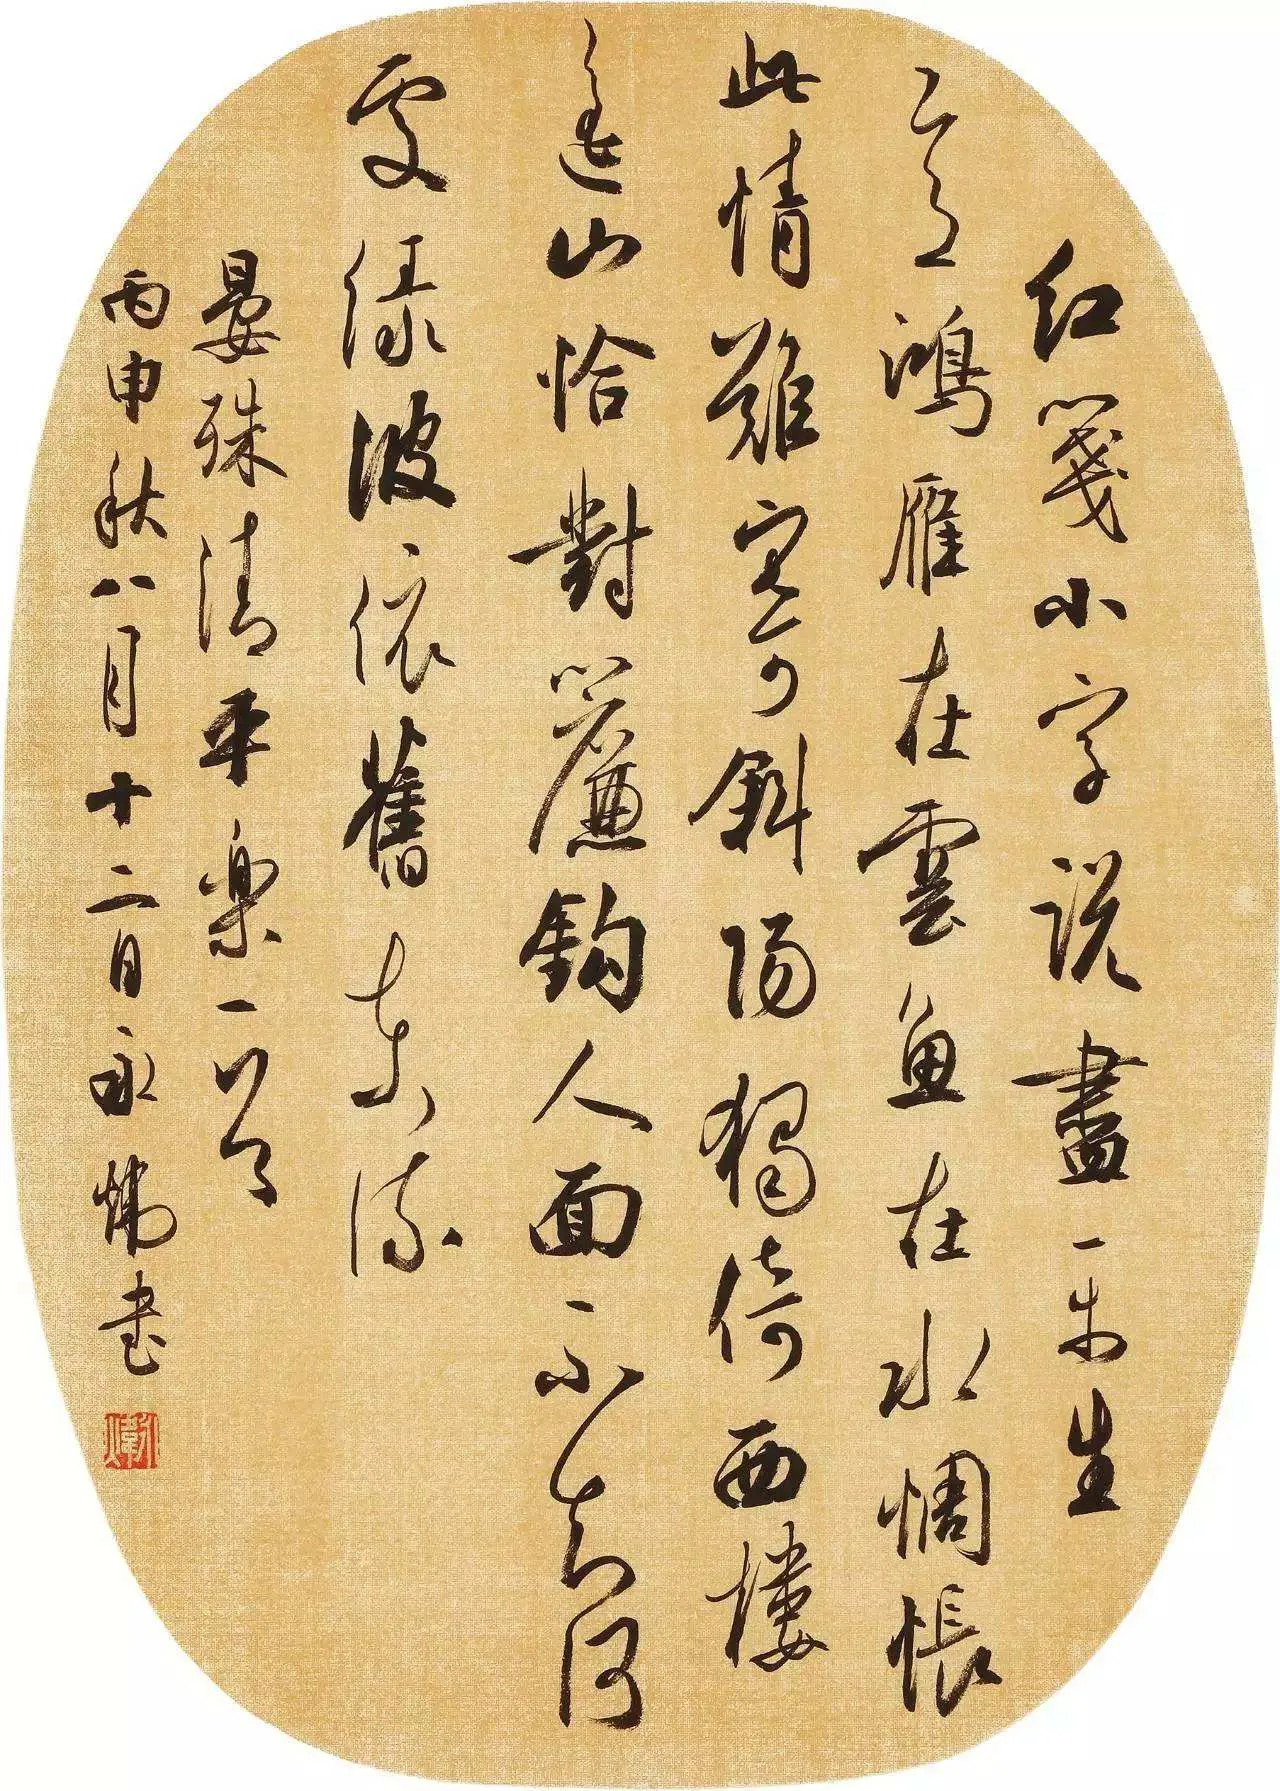 紅箋小字說盡平生
意鴻雁在雲魚在水惆悵
此情難寄斜陽獨倚西樓
遙山恰對簾鈎人面不知何
處綠波依舊東流
晏殊清平樂一首
丙申秋八月十二日永煒書